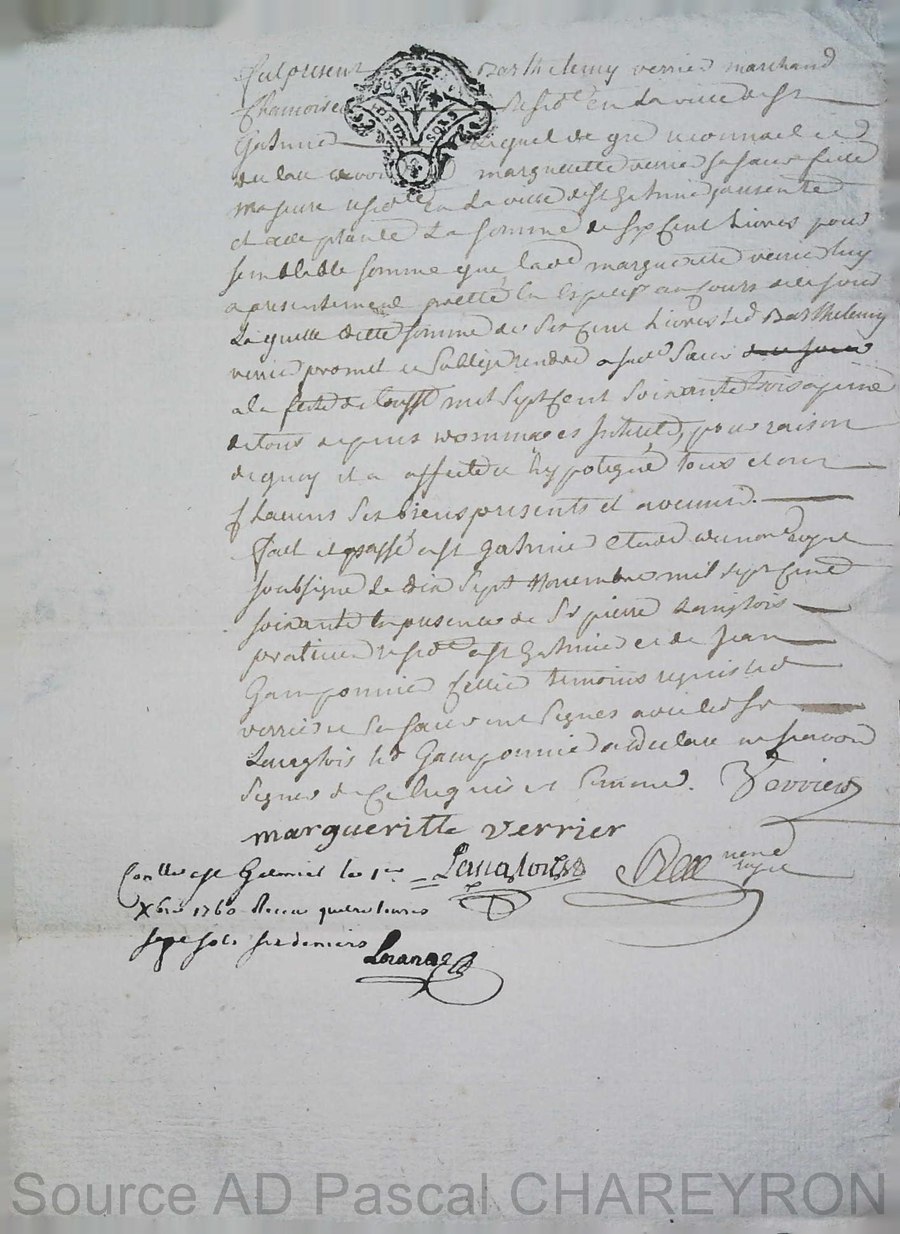 fut present Barthelemy verrier marchand
Chamoiseur reside en la ville de st
Galmier Lequel de gré reconnoit et
declare devoir a margueritte verrier sa sœur fille
majeure reside en la ville de st Galmier presente
et acceptante La somme de six cent Livres pour
semblable somme que lade marguerite verrier luy
a presentement pretté en Especes au cours de ce jour
Laquelle ditte somme de six cent Livres led Barthelemy
verrier promet et soblige rendre a sad sœur
a la feste de touss mil sept cent soixante trois a peine
de tous depens dommages Interets, pour raison
de quoy il a affecté et hypotequé tous et un
chacuns ses biens presents et avenirs.
fait et passé a st Galmier etude du nore royal
soubsigné Le dix sept Novembre mil sept cent
soixante En presence de Sr pierre Langlois
praticien reside a st Galmier et de Jean
Gamponnier temoins requis led
verrier et sa sœur ont signés avec led Sr
Langlois led Gamponnier a declaré ne sçavoir
signer de ce Enquis et sommé. Verrier
margueritte verrier
Conlle a st Galmier le 1er Langlois nore royal
Xbre 1760 Receu quatre livres
sept sols six deniers
DEUX SOLS
Source AD Pascal CHAREYRON